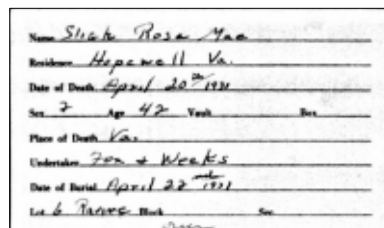 Name Slick Rosa Mae
Residence Hopewell Va.
Date of Death April 20th 1931
Sex 7 Age 42 Vault Box
Place of Death Va.
Undertaker Fox & Weeks
Date of Burial April 22nd 1931
Lot 6 Range Block Sec